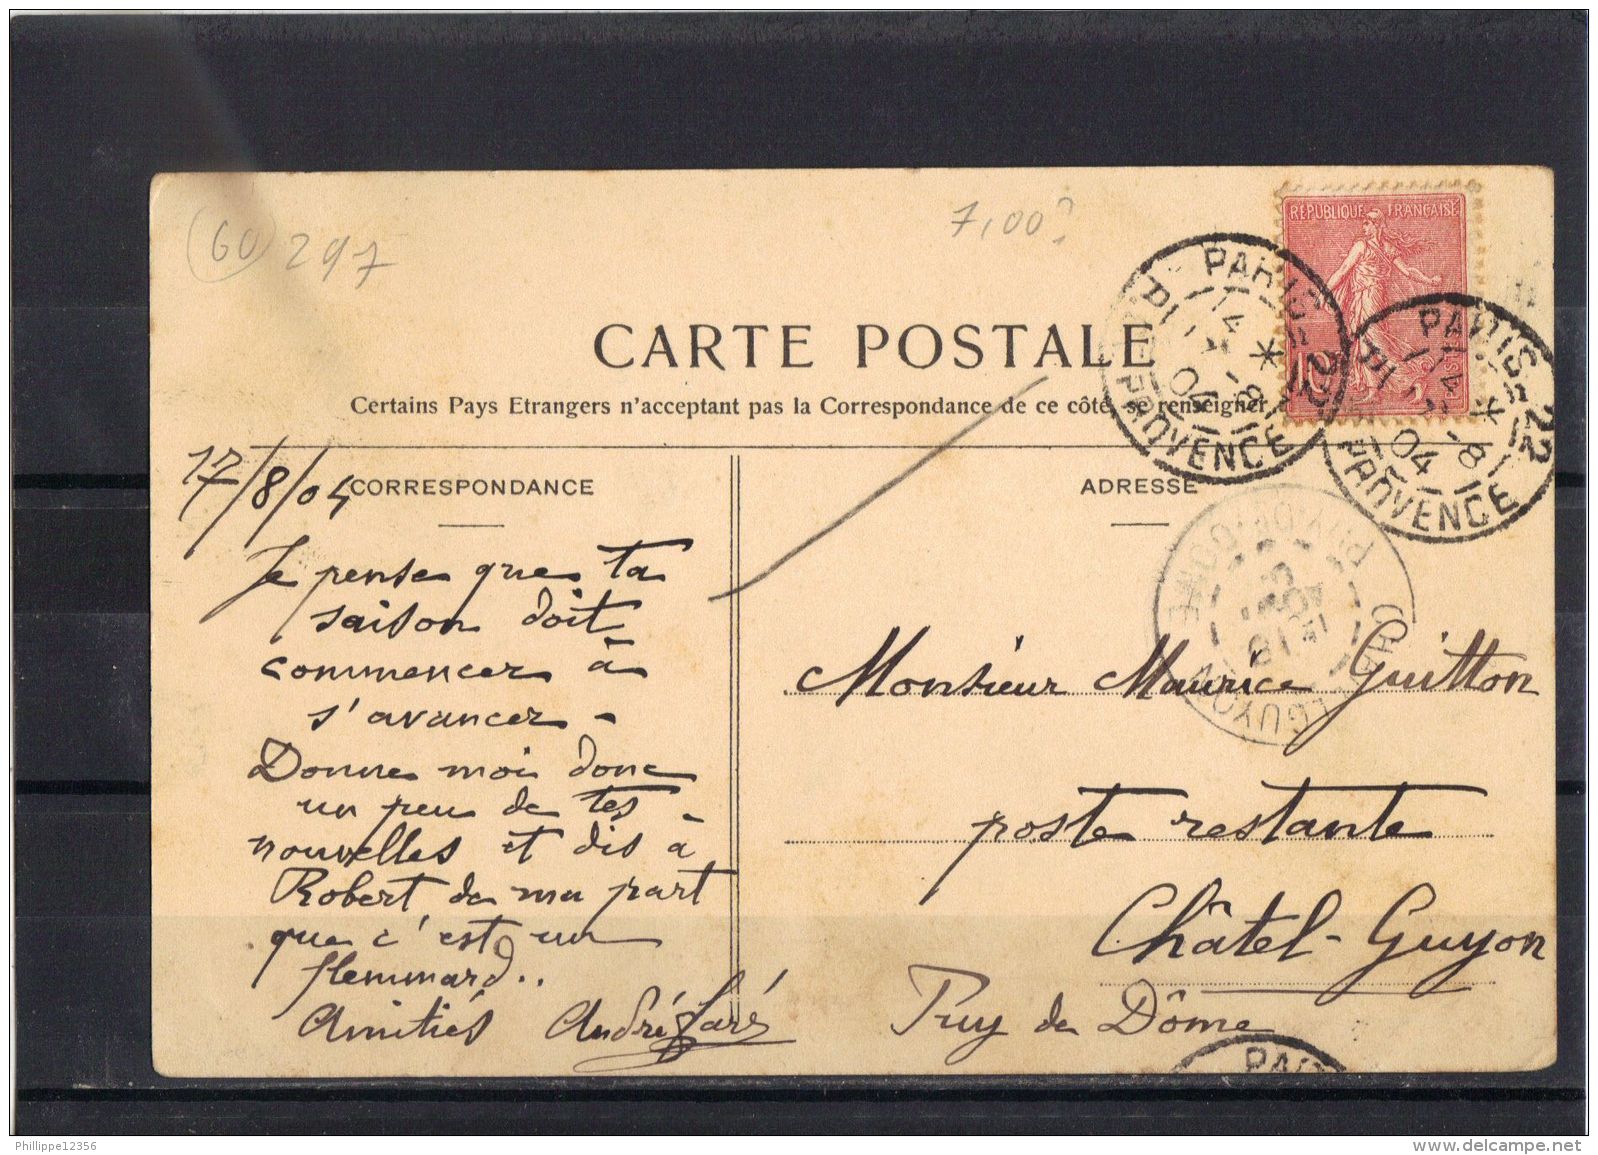 60 297
7,00?
RÉPUBLIQUE FRANÇAISE
PARIS-22
R. DE PROVENCE
14
17-8
04
PARIS-22
14
17-8
04
PROVENCE
CARTE POSTALE
Certains Pays Etrangers n'acceptant pas la Correspondance de ce côté, se renseigner
17/8/04
CORRESPONDANCE
Je pense que ta
saison doit
commencer à
s'avancer -
Donne moi donc
un peu de tes
nouvelles et dis à
Robert de ma part
que c'est un
flemmard..
Amitiés André
ADRESSE
PUY-DE-DOME
CHATELGUYON
18
AOUT
Monsieur Maurice Guitton
poste restante
Châtel-Guyon
Puy de Dôme
PARIS
Philippe12356
delcampe.net